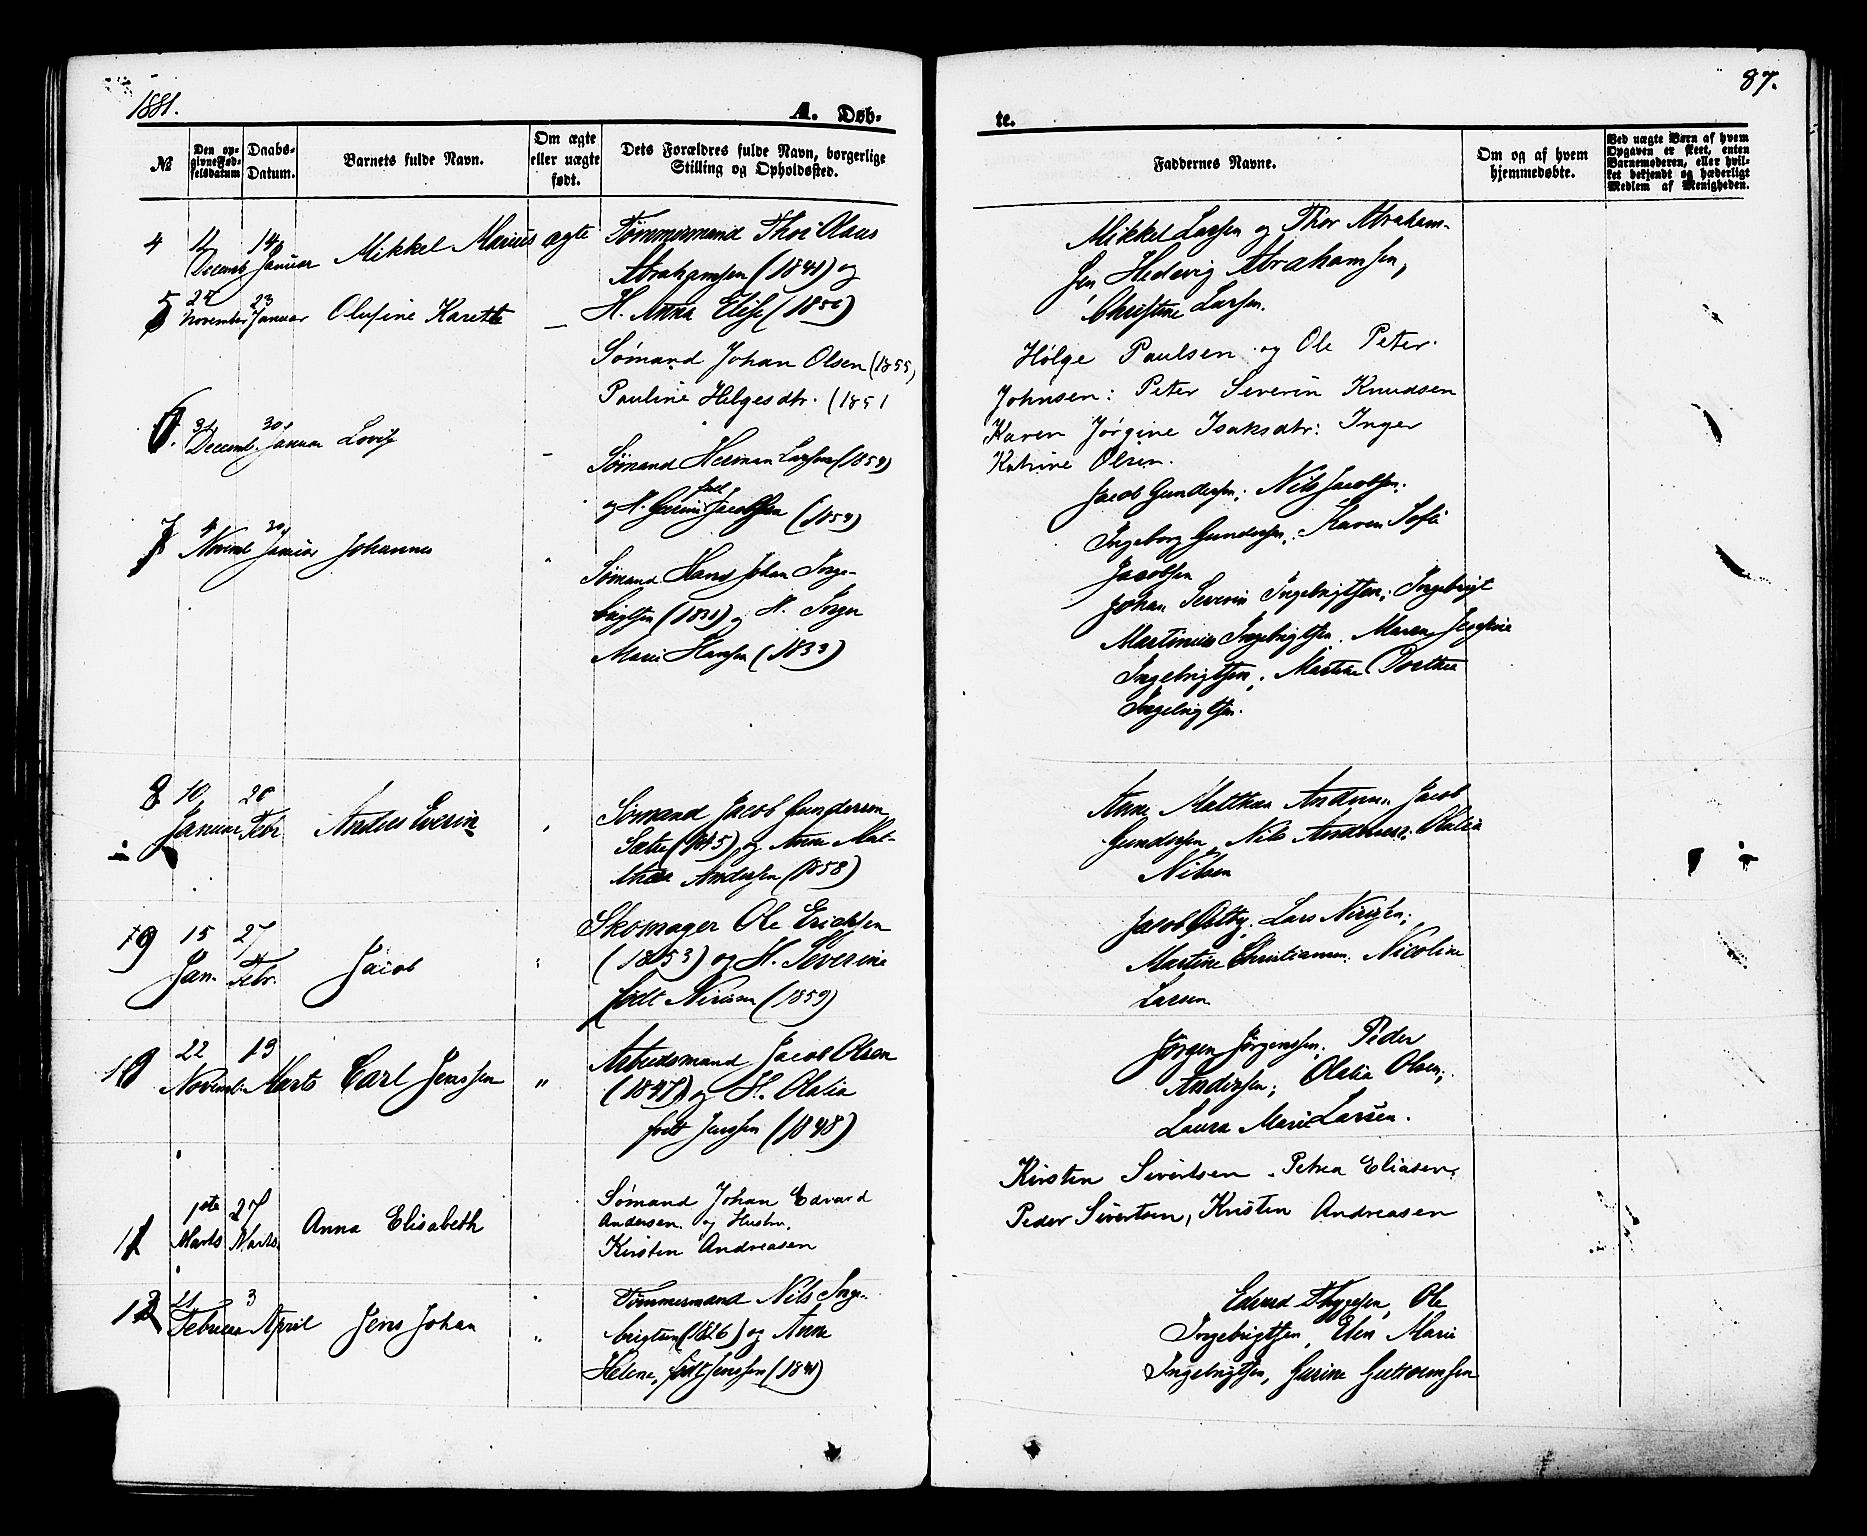 1881.
A. Døb-
№
Den op-
givne Fød-
selsdatum
Daabs-
Datum.
Barnets fulde Navn.
Om ægte
eller uægte
født.
Dets Forældres fulde Navn, borgerlige
Stilling og Opholdssted.
4
11 Decemb
14 Januar
Mikkel Marius
ægte
Tømmermand Thor Olaus
Abrahamsen (1841) og
H. Anna Elise (1850)
5
24 November
23 Januar
Olufine Karette
Sømand Johan Olsen (1855)
Pauline Helgesdtr. (1851
6.
31 Decemb.
30 Januar
Lovise
Sømand Herman Larssen (1859)
og H. Gurine født Jacobsen (1859)
7
4 Novemb
30 Januar
Johannes
Sømand Hans Johan Inge-
brigtsen (1831) og H. Inger
Marie Hansen (1833)
8
10 Januar
20 Febr
Andreas Severin
Sømand Jacob Gundersen
Sætre (1845) og Anne Mat-
thea Andersen (1858)
9
15 Jan.
27 Febr.
Jacob
Skomager Ole Ericksen
(1853) og H. Severine
født (1859)
10
22 Novemb
13 Marts
Carl Jenssen
"
Arbeidsmand Jacob Olsen
(1847) og H. Olalia
født Jenssen (1848)
11
1ste Marts
27 Marts
Anna Elisabeth
Sømand Johan Edvard
Andersen og Hustru,
Kirsten Andreasen
12
21 Februar
3 April
Jens Johan
"
Tømmermand Nils Inge-
brigtsen (1826) og Anne
Helene, født Jenssen (1841)
87.
te.
Faddernes Navne.
Om og af hvem
hjemmedøbte.
Ved uægte Børn af hvem
Opgaven er skeet, enten
Barnemoderen, eller hvil-
ket bekjendt og hæderligt
Medlem af Menigheden.
Mikkel Larssen og Thor Abraham-
sen Hedevig Abrahamsen,
Christine Larsen.
Hølge Paulsen og Ole Peter
Johnsen: Peter Severin Knudsen
Karen Jørgine Isaksdtr: Inger
Katrine Olsen.
Jacob Gundersen; Nils Jacobsen;
Ingeborg Gundersen; Karen Sofie
Jacobsen
Johan Severin Ingebrigtsen; Ingebrigt
Martinius Ingebrigtsen. Maren Josefine
Ingebrigtsen; Martine Dorthea
Ingebrigtsen.
Anne Matthea Andersen Jacob
Gundersen, Nils Andersen; Olalia
Nilsen
Jacob Østby, Lars;
Martine Christiansen; Nicoline
Larsen
Jørgen Jørgensen; Peder
Andersen; Olalia Olsen;
Laura Marie Larsen.
Kirsten Sivertsen. Petrea Eliasen,
Peder Sivertsen, Kristen Andreasen
Edvard Thygesen, Ole
Ingebrigtsen, Elen Marie
Ingebrigtsen, Gurine Guttormsen